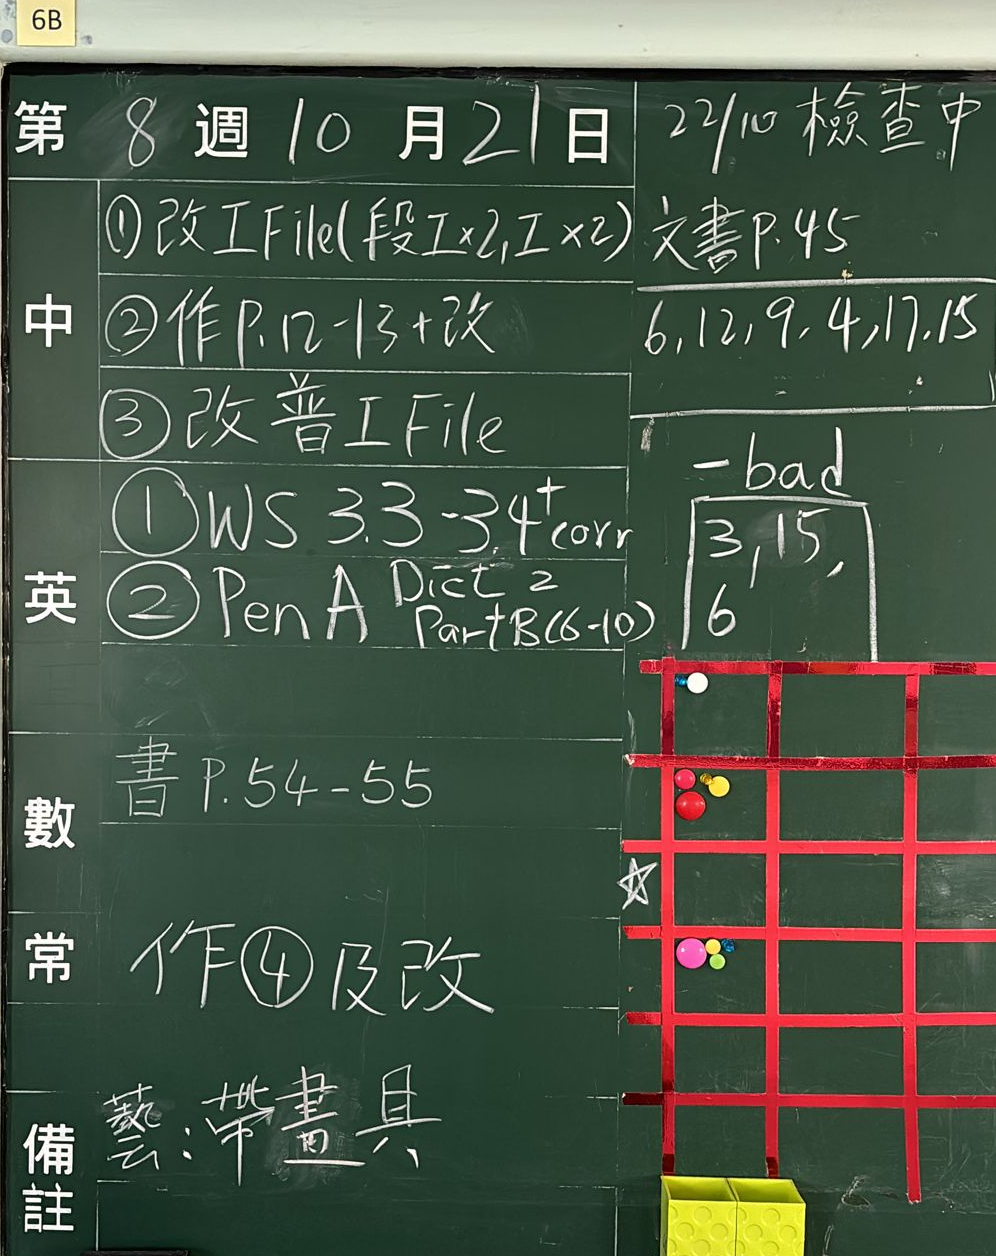 6B
第 8 週 10 月 21 日
中
①改工File(段工×2,工×2)
②作P.12-13+改
③改普工File
英
①WS 3.3-3.4+corr
②PenA Dict 2
PartB(6-10)
數
書 P.54-55
常
作④及改
備註
藝:帶畫具
22/10 檢查中
文書P.45
6,12,9,4,17,15
-bad
3,15,
6